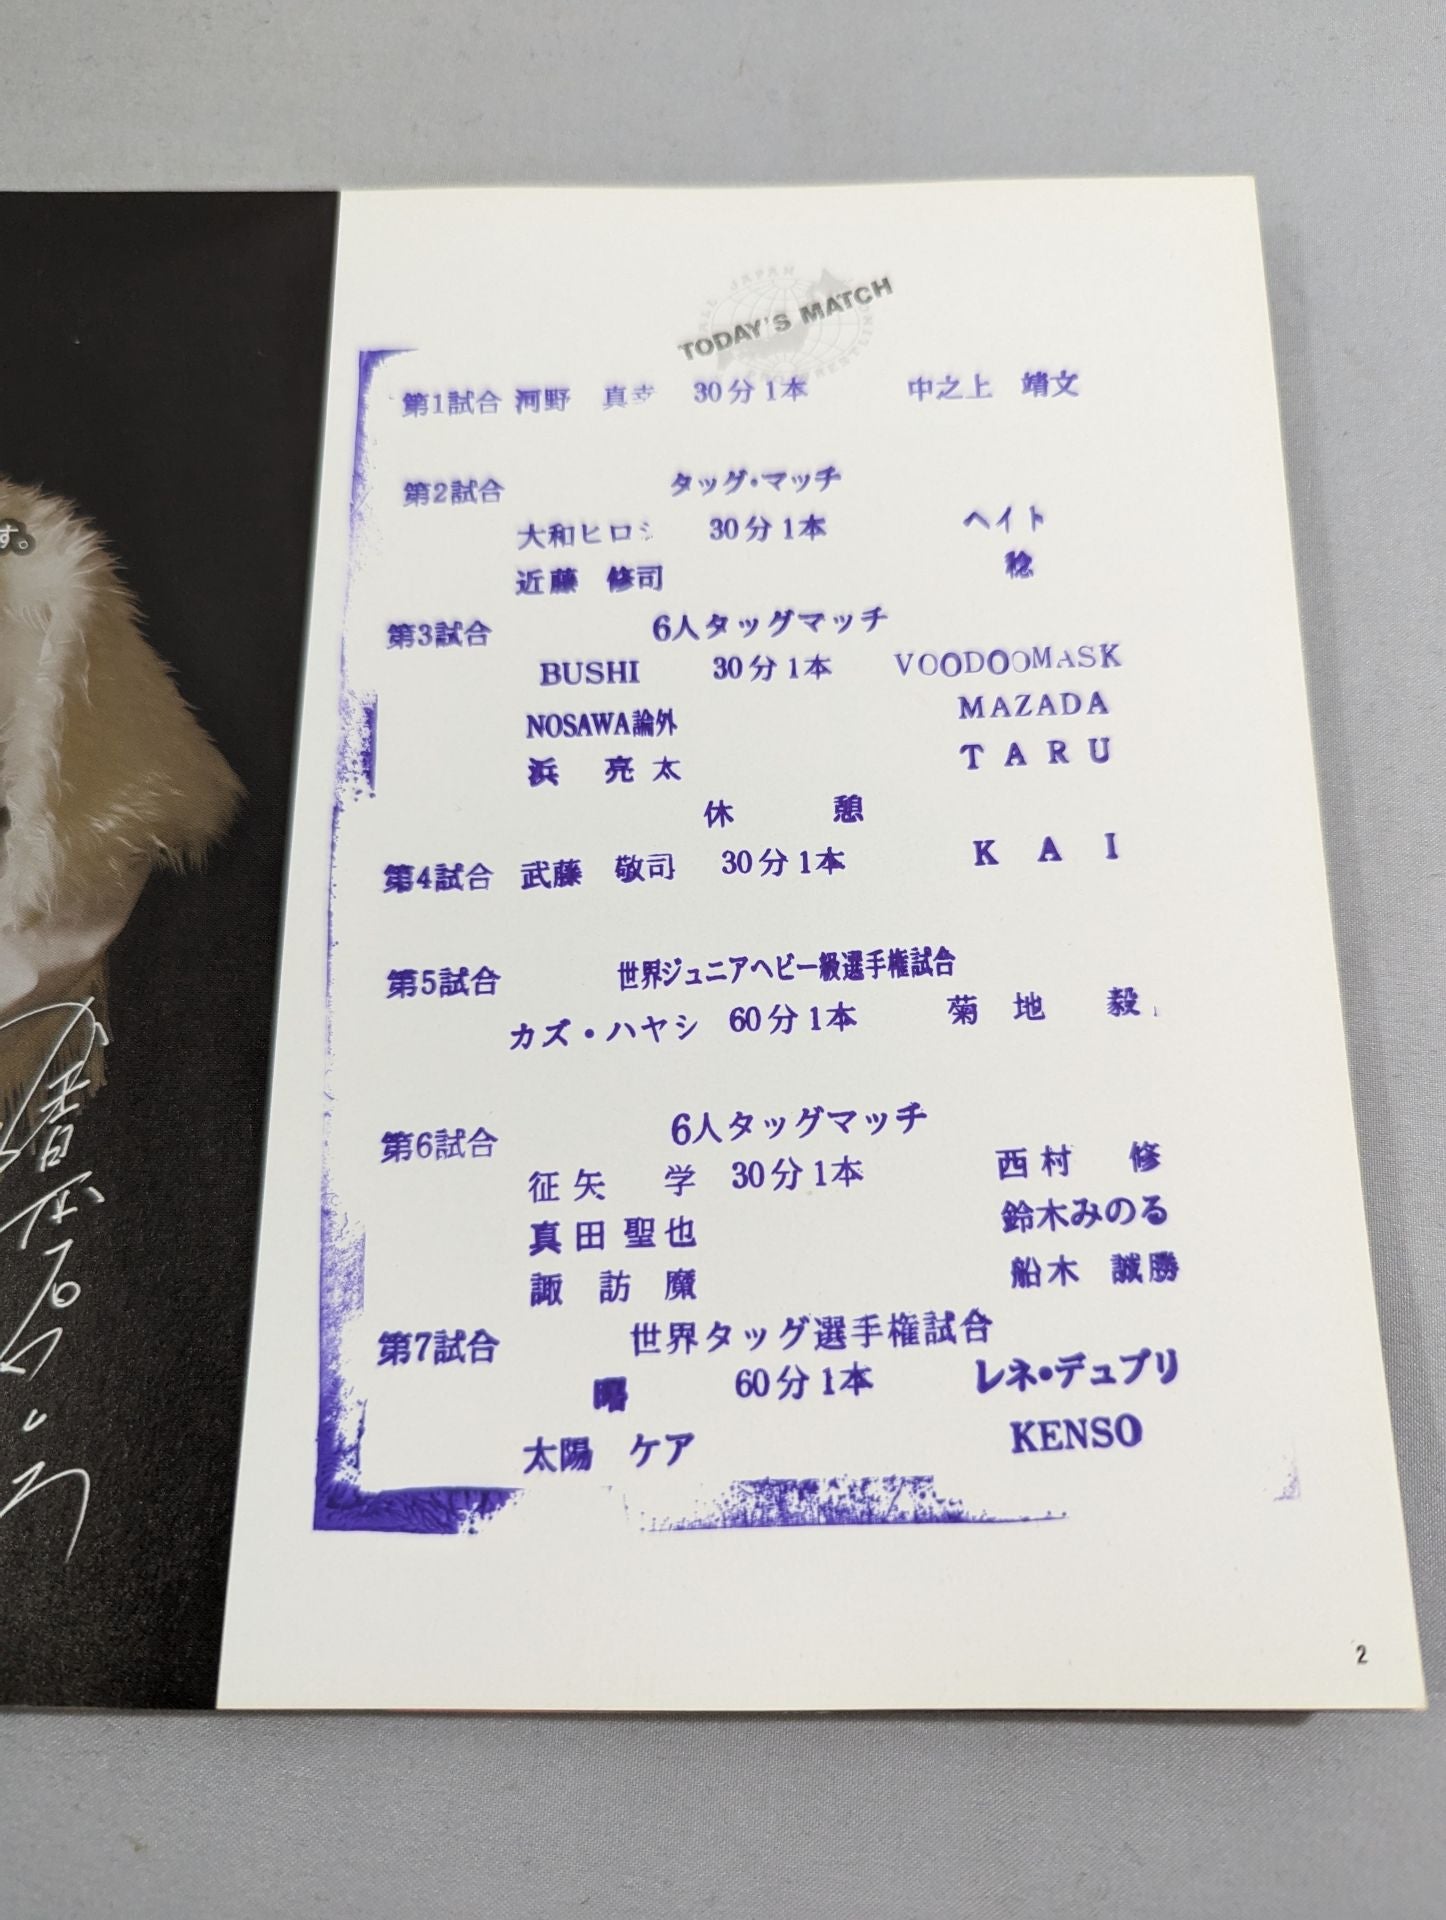 す。
ALL JAPAN PRO WRESTLING
TODAY'S MATCH
第1試合 河野 真幸 30分1本 中之上 靖文
第2試合 タッグ・マッチ
大和ヒロシ 30分1本 ヘイト
近藤 修司 稔
第3試合 6人タッグマッチ
BUSHI 30分1本 VOODOOMASK
NOSAWA論外 MAZADA
浜 亮太 TARU
休憩
第4試合 武藤 敬司 30分1本 KAI
第5試合 世界ジュニアヘビー級選手権試合
カズ・ハヤシ 60分1本 菊地 毅
第6試合 6人タッグマッチ
征矢 学 30分1本 西村 修
真田聖也 鈴木みのる
諏訪魔 船木 誠勝
第7試合 世界タッグ選手権試合
曙 60分1本 レネ・デュプリ
太陽 ケア KENSO
2